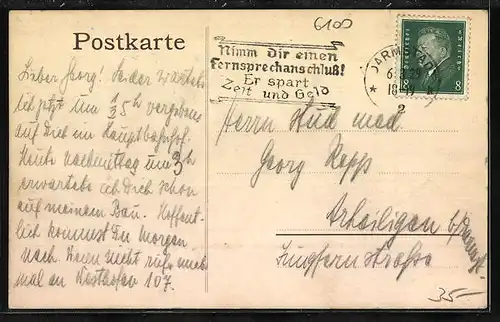 6100
Postkarte
Nimm dir einen
Fernsprechanschluß!
Er spart
Zeit und Geld
DARMSTADT
2
8
Lieber Georg! Leider wartete
ich jetzt um ½5h vergebens
auf Dich im Hauptbahnhof.
Heute nachmittag um 3h
erwartete ich Dich schon
auf meinem Bau. Hoffent-
lich kommst Du morgen
nach. Wenn nicht rufe mich
mal an Westhofen 107.
Herrn Stud med
Georg Repp
Arheilgen b/Darmst.
Jungfernstraße
35-